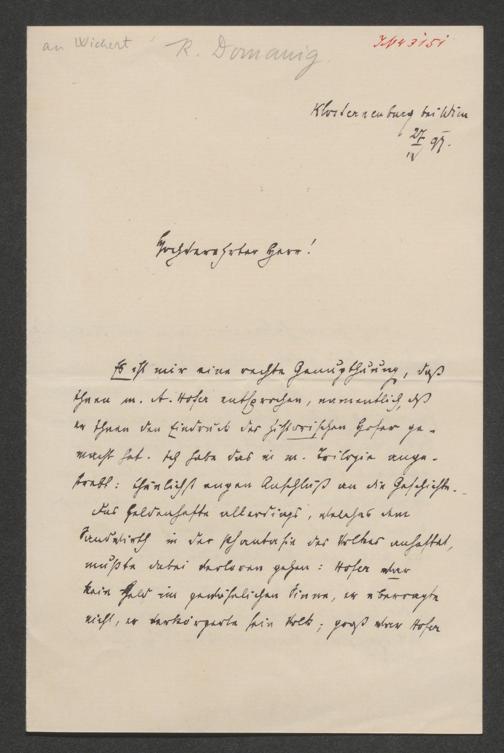 an Wichert
K. Domanig
Klosterneuburg bei Wien
27/IV 97.
Hochverehrter Herr!
Es ist mir eine rechte Genugthuung, daß
Ihnen m. A. Hofer entsprochen, namentlich, dß
er Ihnen den Eindruck des historischen Hofer ge-
macht hat. Ich habe das in m. Trilogie ange-
strebt: thunlichst engen Anschluß an die Geschichte.
Das Heldenhafte allerdings, welches dem
Sandwirth in der Phantasie des Volkes anhaftet,
mußte dabei verloren gehen: Hofer war
kein Held im gewöhnlichen Sinne, er überragte
nicht, er verkörperte sein Volk; groß war Hofer